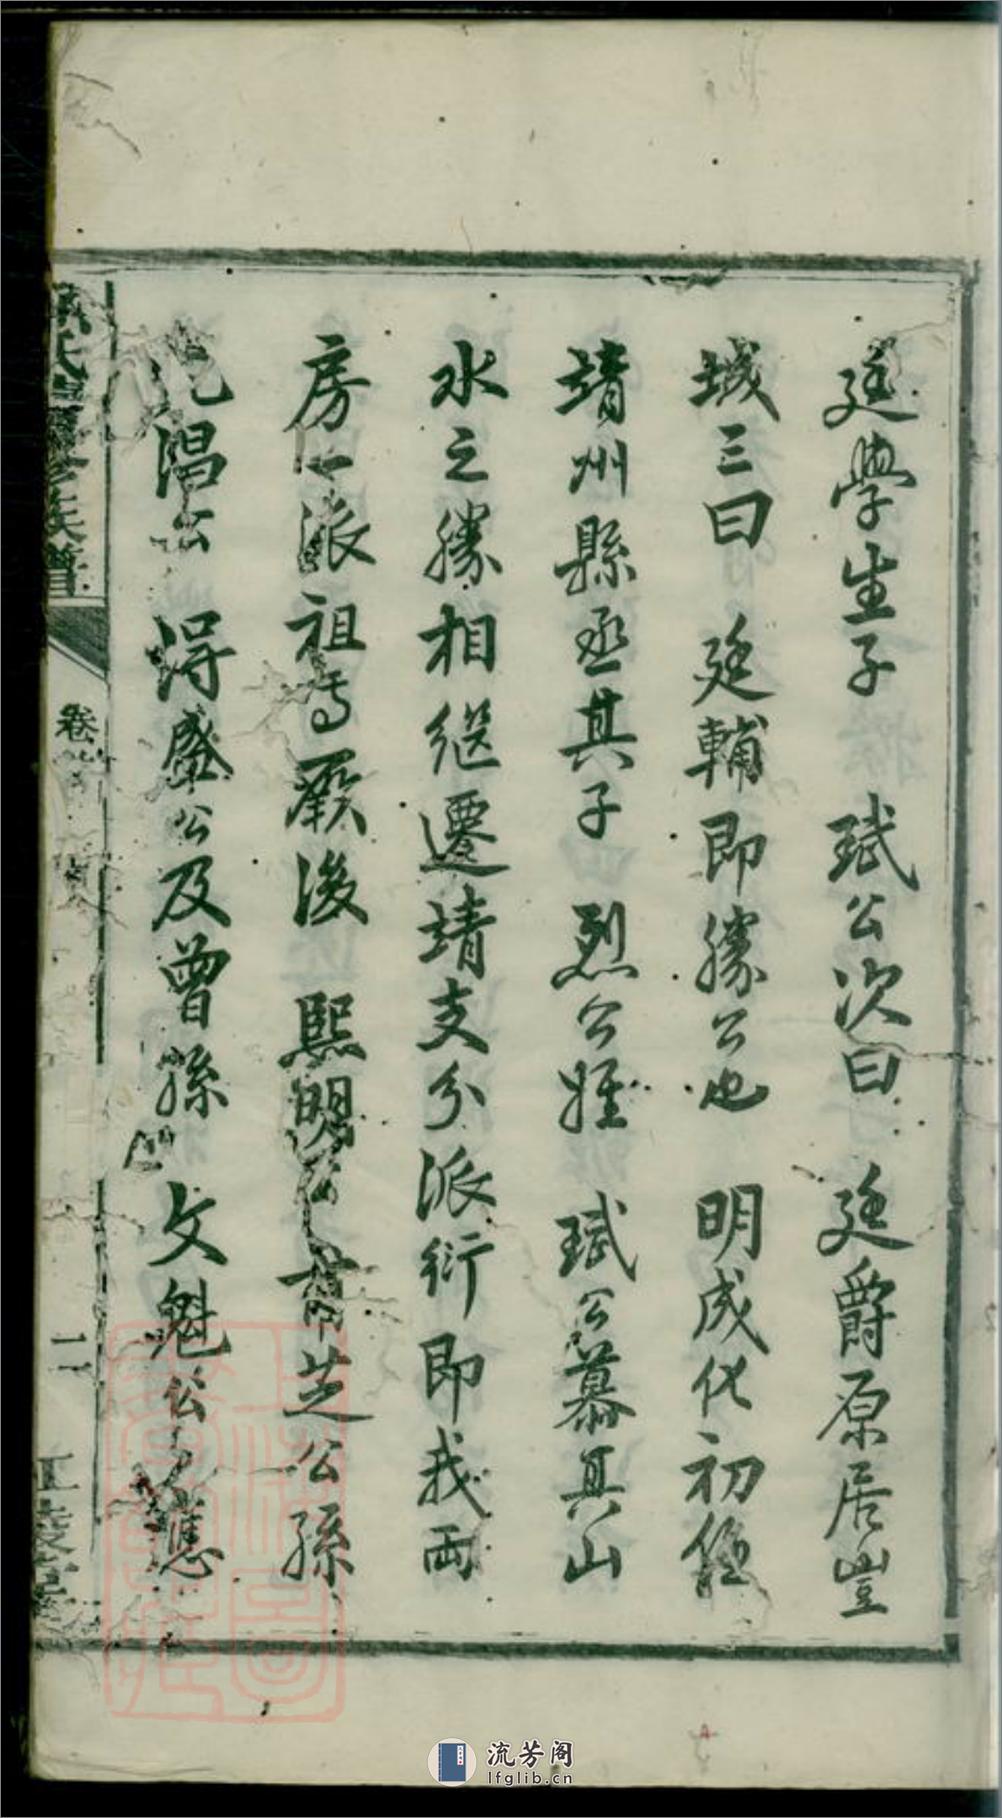 廷學生子　珷公次曰　廷爵原居豈
城三曰　廷輔即勝公也　明成化初任
靖州縣丞其子　烈公姪　珷公慕其山
水之勝相继遷靖支分派衍即我两
房一派祖焉厥後　熙明公　芝公孫
温公　得盛公及曾孫　文魁公應
氏 族譜
卷 二
流芳阁
lfglib.cn